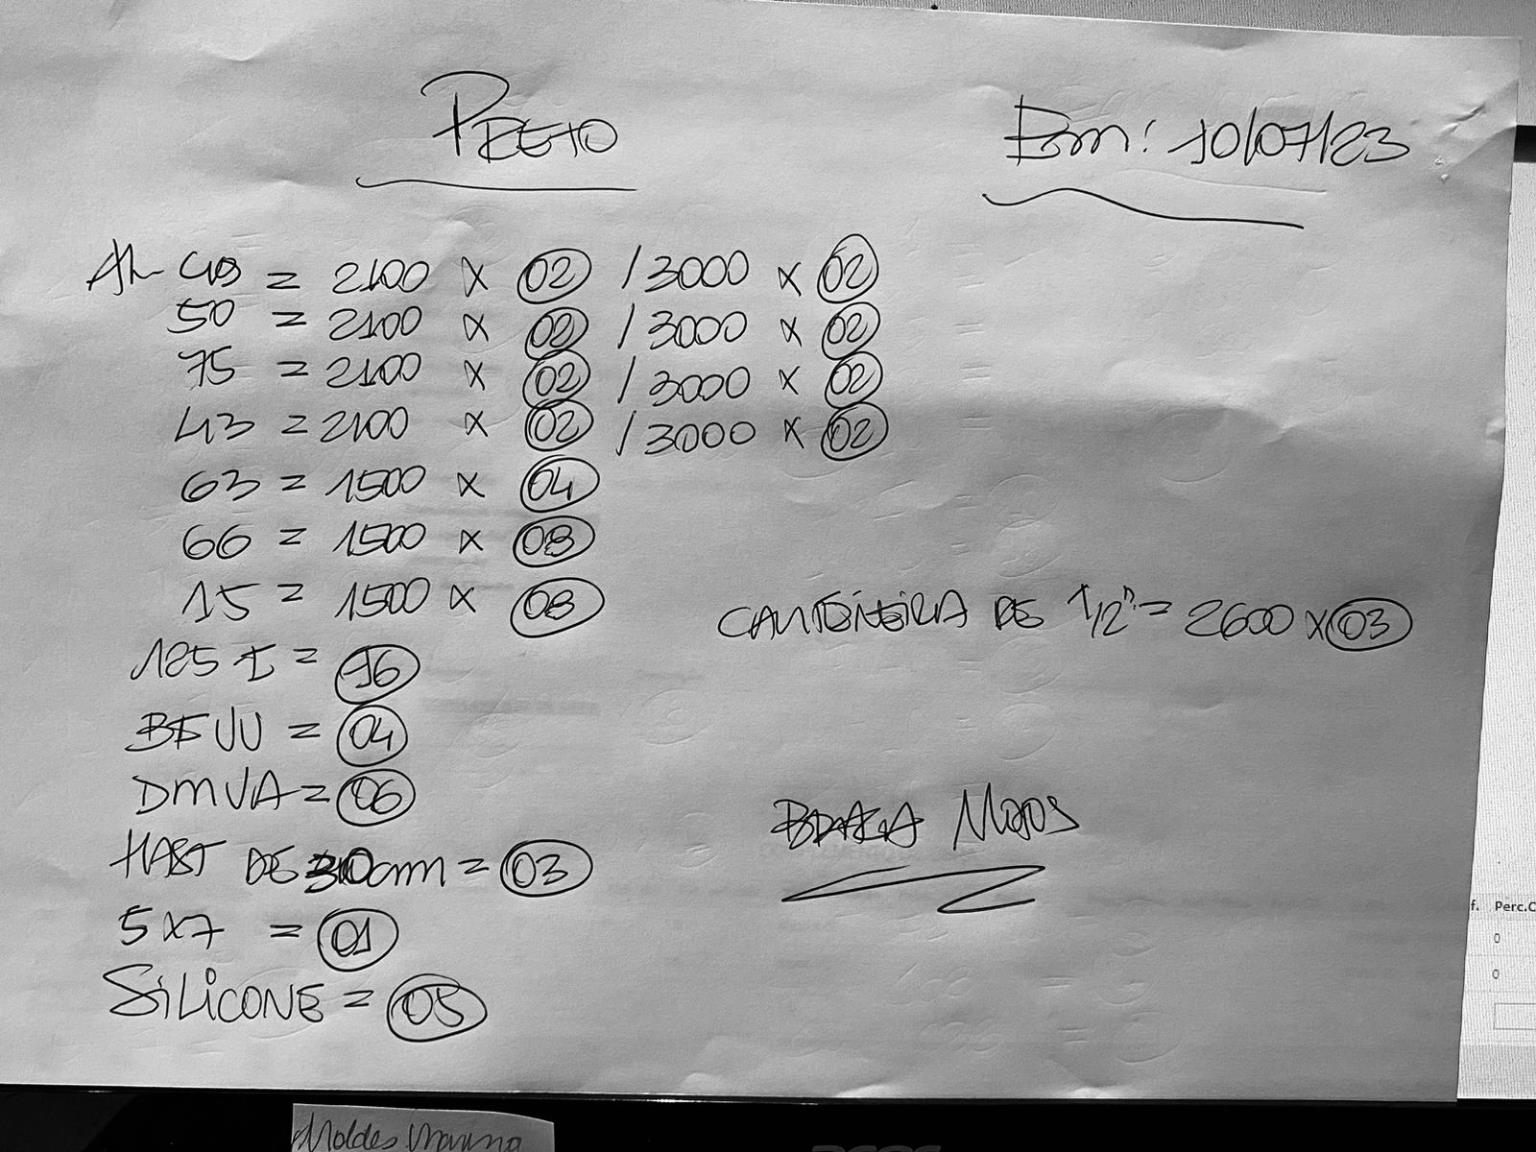 PRETO
Em: 10/07/23
AL 48 = 2100 x 02 / 3000 x 02
50 = 2100 x 02 / 3000 x 02
75 = 2100 x 02 / 3000 x 02
43 = 2100 x 02 / 3000 x 02
63 = 1500 x 04
66 = 1500 x 08
15 = 1500 x 08
CANTONEIRA DE 1/2" = 2600 x 03
125 I = 16
BFVU = 04
DMVA = 06
HAST DE 30cm = 03
BRAGA MOOS
5x7 = 01
SiLiCONE = 05
f. Perc.C
0
0
Moldes